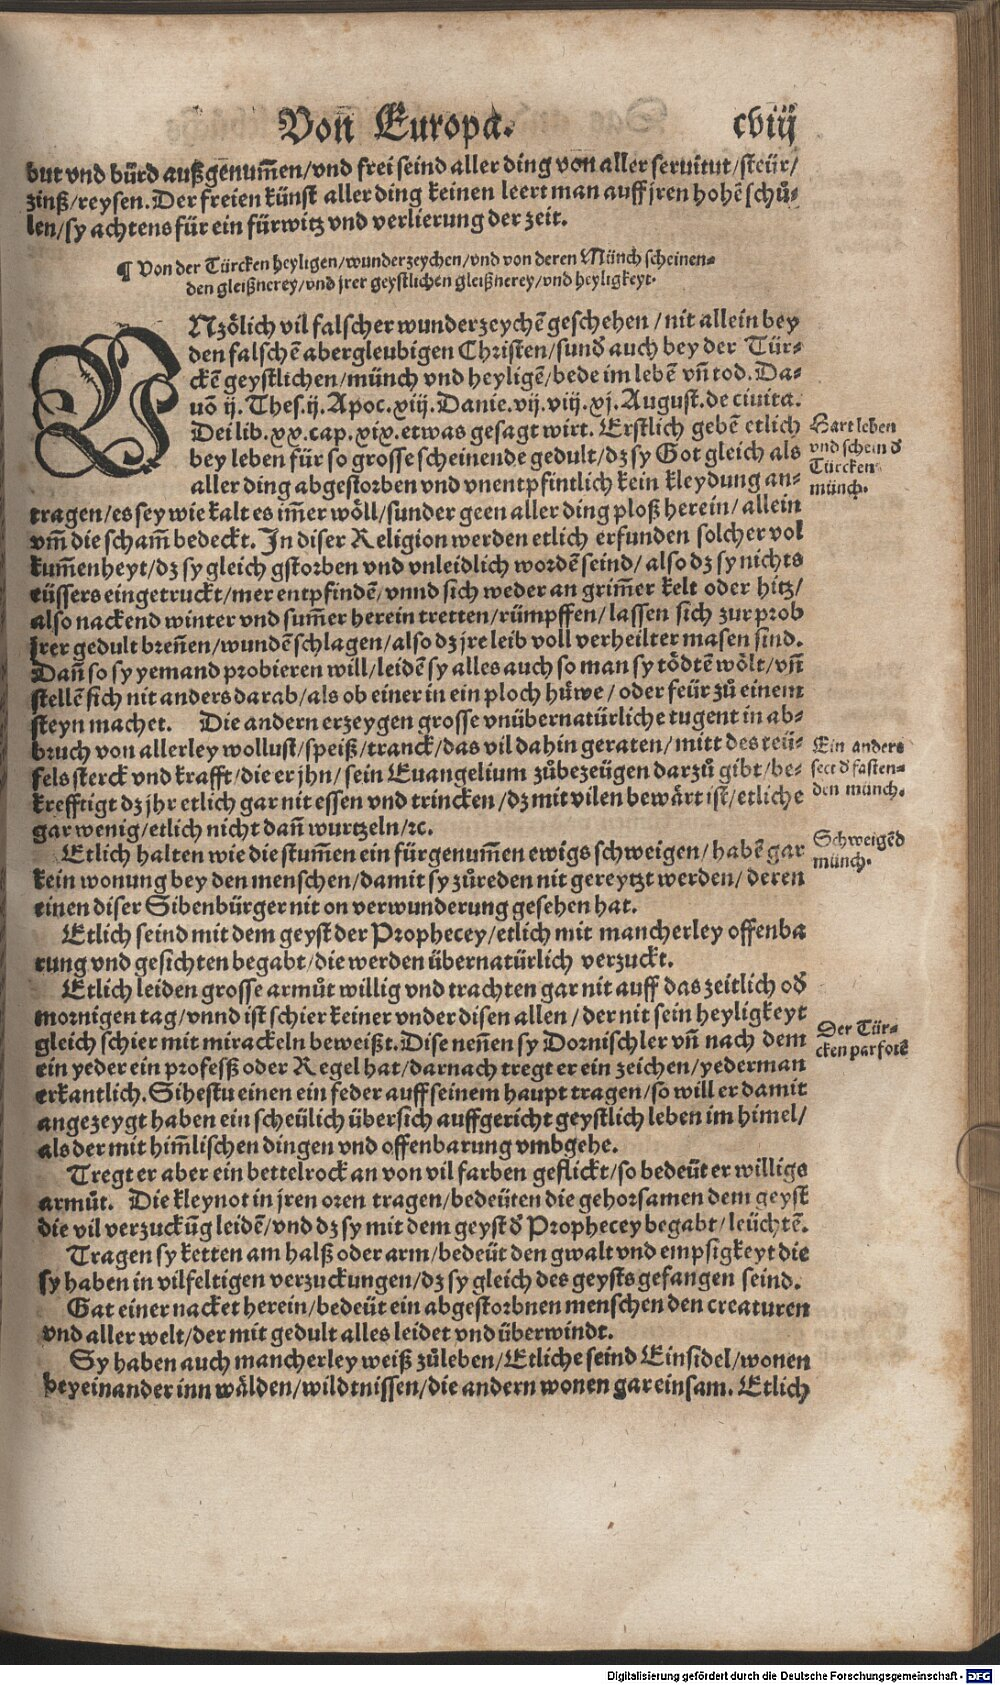 Von̄ Europa. cviij
but vnd bürd außgenum̄en/vnd frei seind aller ding von aller seruitut/steür/
zinß/reysen. Der freien künst aller ding keinen leert man auff jren hohē schů-
len/sy achtens für ein fürwitz vnd verlierung der zeit.
¶ Von der Türcken heyligen/wunderzeychen/vnd von deren Münch scheinen-
den gleißnerey/vnd jrer geystlichen gleißnerey/vnd heyligkeyt.
VNzölich vil falscher wunderzeychē geschehen/nit allein bey
den falschē abergleubigen Christen/sund̄ auch bey der Tür-
ckē geystlichen/münch vnd heyligē/bede im lebē vn̄ tod. Da-
uō ij. Thes. ij. Apoc. xiij. Danie. vij. viij. xj. August. de ciuita.
Dei lib. xx. cap. xix. etwas gesagt wirt. Erstlich gebē etlich
bey leben für so grosse scheinende gedult/dz sy Got gleich als
aller ding abgestorben vnd vnentpfintlich kein kleydung an-
tragen/es sey wie kalt es im̄er wöll/sunder geen aller ding ploß herein/allein
vm̄ die scham̄ bedeckt. In diser Religion werden etlich erfunden solcher vol
kum̄enheyt/dz sy gleich gstorben vnd vnleidlich wordē seind/also dz sy nichts
eüssers eingetruckt/mer entpfindē/vnnd sich weder an grim̄er kelt oder hitz/
also nackend winter vnd sum̄er herein tretten/rümpffen/lassen sich zur prob
jrer gedult bren̄en/wundē schlagen/also dz jre leib voll verheilter masen sind.
Dan̄ so sy yemand probieren will/leidē sy alles auch so man sy tödtē wölt/vn̄
stellē sich nit anders darab/als ob einer in ein ploch hüwe/oder feür zů einem
steyn machet. Die andern erzeygen grosse vnübernatürliche tugent in ab-
bruch von allerley wollust/speiß/tranck/das vil dahin geraten/mitt des teü-
fels sterck vnd krafft/die er jhn/sein Euangelium zůbezeügen darzů gibt/be-
krefftigt dz jhr etlich gar nit essen vnd trincken/dz mit vilen bewärt ist/etliche
gar wenig/etlich nicht dan̄ wurtzeln/ꝛc.
Etlich halten wie die stum̄en ein fürgenum̄en ewigs schweigen/habē gar
kein wonung bey den menschen/damit sy zůreden nit gereytzt werden/deren
einen diser Sibenbürger nit on verwunderung gesehen hat.
Etlich seind mit dem geyst der Prophecey/etlich mit mancherley offenba
rung vnd gesichten begabt/die werden übernatürlich verzuckt.
Etlich leiden grosse armůt willig vnd trachten gar nit auff das zeitlich od̄
mornigen tag/vnnd ist schier keiner vnder disen allen/der nit sein heyligkeyt
gleich schier mit mirackeln beweißt. Dise nen̄en sy Dornischler vn̄ nach dem
ein yeder ein profesß oder Regel hat/darnach tregt er ein zeichen/yederman
erkantlich. Sihestu einen ein feder auff seinem haupt tragen/so will er damit
angezeygt haben ein scheülich übersich auffgericht geystlich leben im himel/
als der mit him̄lischen dingen vnd offenbarung vmbgehe.
Tregt er aber ein bettelrock an von vil farben geflickt/so bedeüt er willigs
armůt. Die kleynot in jren oren tragen/bedeüten die gehorsamen dem geyst
die vil verzuckūg leidē/vnd dz sy mit dem geyst d̄ Prophecey begabt/leüchtē.
Tragen sy ketten am halß oder arm/bedeüt den gwalt vnd empsigkeyt die
sy haben in vilfeltigen verzuckungen/dz sy gleich des geysts gefangen seind.
Gat einer nacket herein/bedeüt ein abgestorbnen menschen den creaturen
vnd aller welt/der mit gedult alles leidet vnd überwindt.
Sy haben auch mancherley weiß zůleben/Etliche seind Einsidel/wonen
beyeinander inn wälden/wildtnissen/die andern wonen gar einsam. Etlich
Hart leben
vnd schein d̄
Türcken
münch.
Ein anders
sect d̄ fasten-
den münch.
Schweigēd
münch.
Der Tür-
cken parfotē
Digitalisierung gefördert durch die Deutsche Forschungsgemeinschaft - DFG